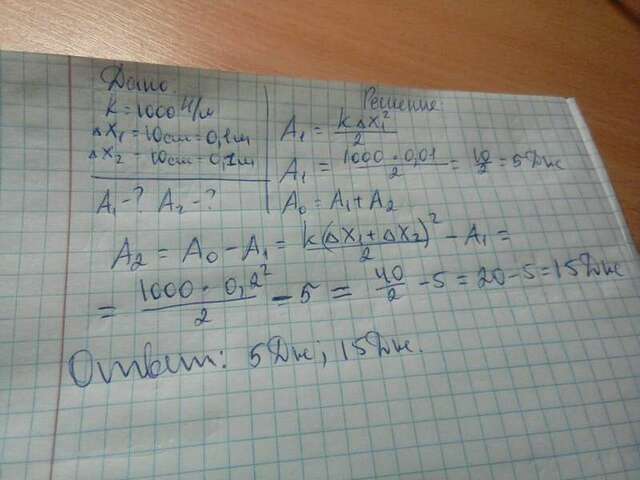 Дано:
k = 1000 Н/м
Δx₁ = 10см = 0,1м
Δx₂ = 10см = 0,1м
A₁ - ? A₂ - ?
Решение:
A₁ = kΔx₁²/2
A₁ = 1000 · 0,01/2 = 10/2 = 5Дж
A₀ = A₁ + A₂
A₂ = A₀ - A₁ = k(Δx₁ + Δx₂)²/2 - A₁ =
= 1000 · 0,2²/2 - 5 = 40/2 - 5 = 20 - 5 = 15Дж
Ответ: 5Дж; 15Дж.